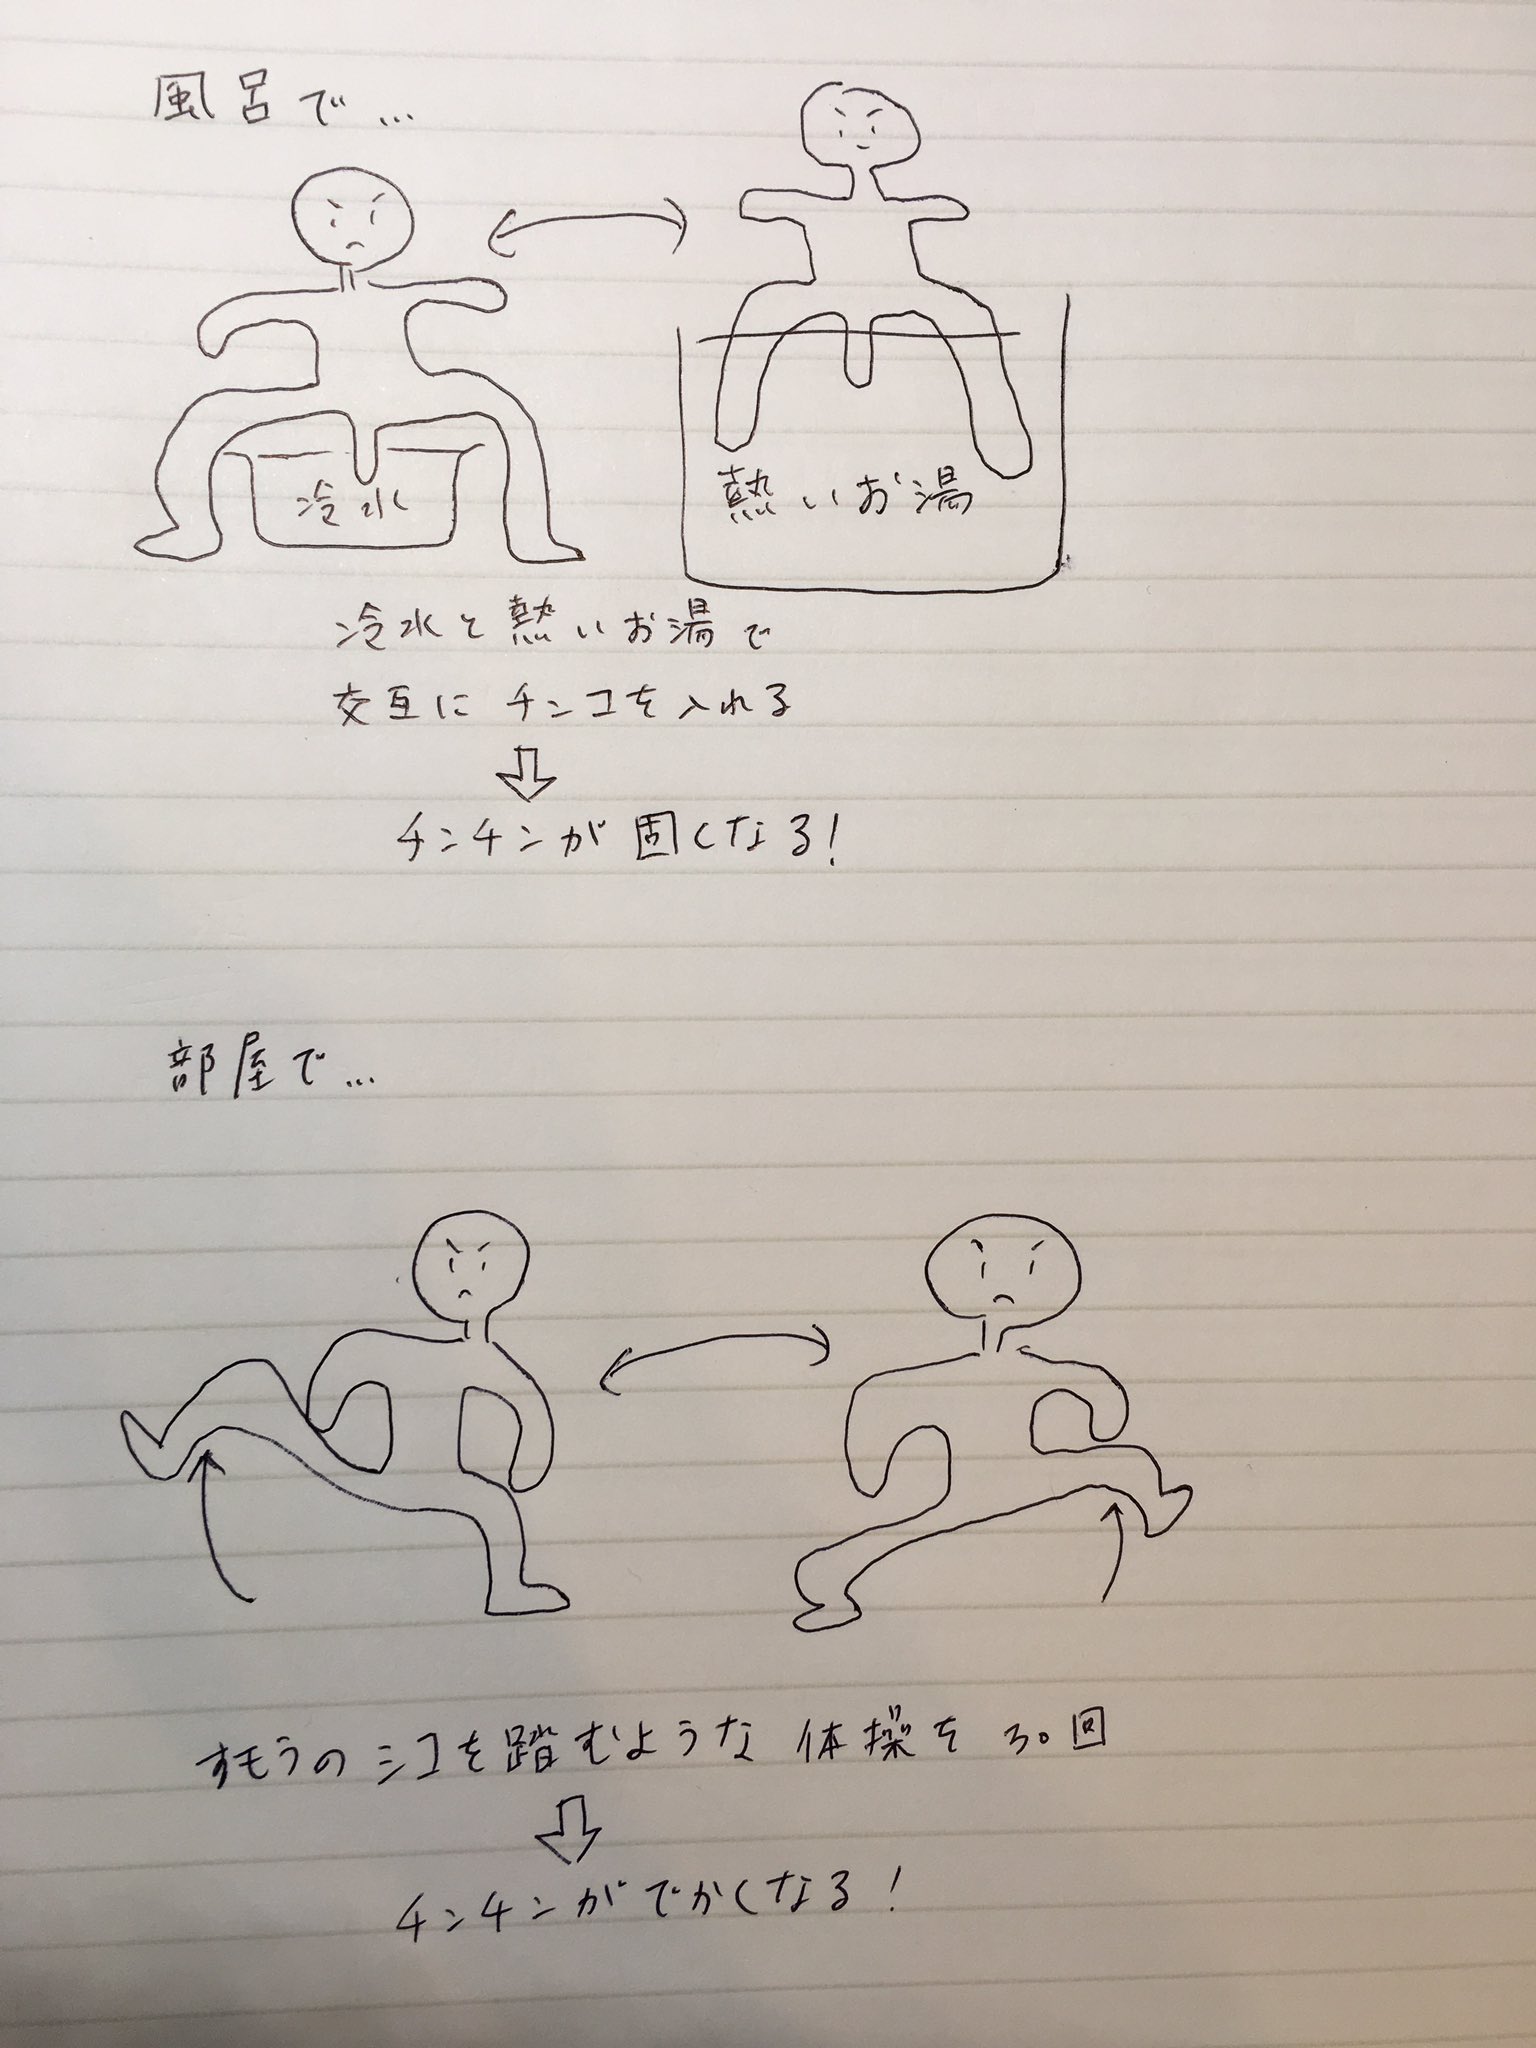 風呂で…
冷水
熱いお湯
冷水と熱いお湯で
交互にチンコを入れる
⇩
チンチンが固くなる!
部屋で…
すもうのシコを踏むような体操を30回
⇩
チンチンがでかくなる!